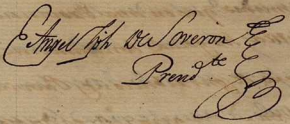 Angel Jph De Soveron
Prend.te